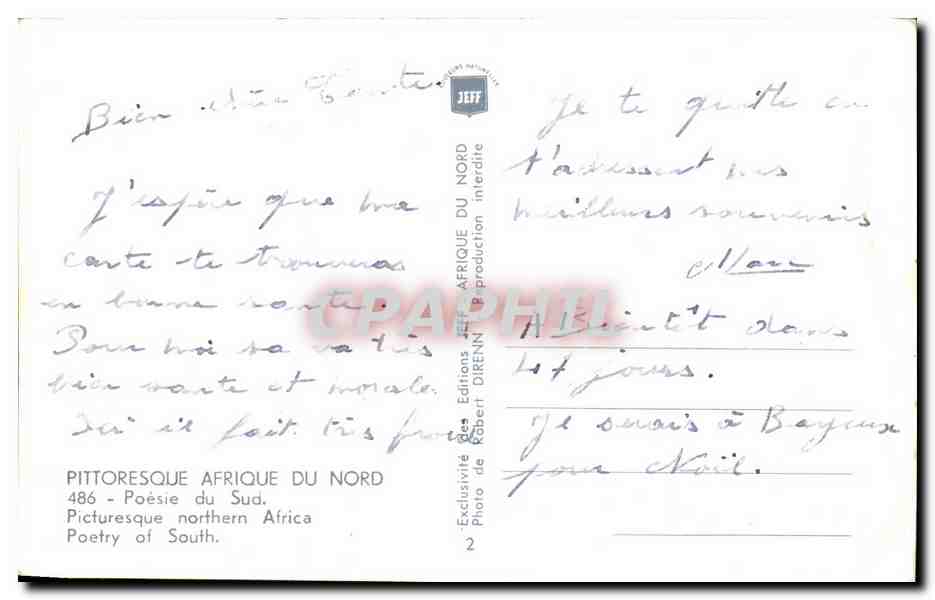 Bien chère Tante.
J'espère que ma
carte te trouveras
en bonne sante.
Pour moi sa va très
bien sante et morale.
Ici il fait très froid
PITTORESQUE AFRIQUE DU NORD
486 - Poésie du Sud.
Picturesque northern Africa
Poetry of South.
COULEURS NATURELLES
JEFF
Exclusivité des Editions JEFF - AFRIQUE DU NORD
Photo de Robert DIRENN Reproduction interdite
2
CPAPHIL
Je te quitte en
t'adressant mes
meilleurs souvenirs
Marc
A Bientôt dans
jours.
Je serais à Bayeux
pour Noël.